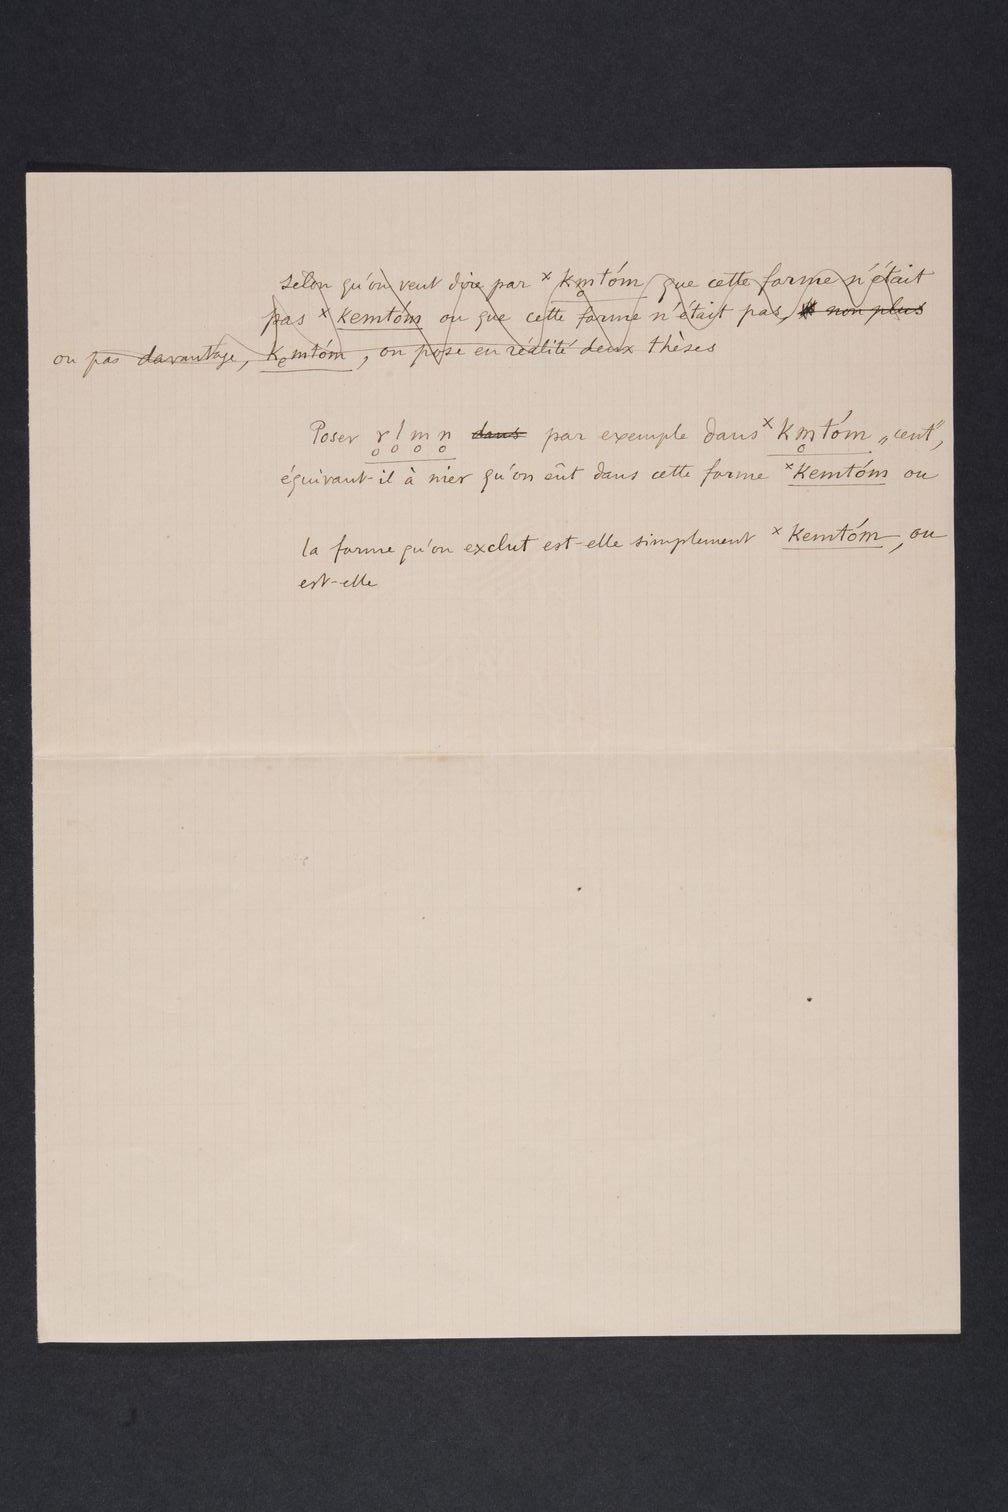 selon qu'on veut dire par ˣ km̥tóm que cette forme n'était
pas ˣ kemtóm ou que cette forme n'était pas, non plus
ou pas davantage, kₑmtóm, on pose en réalité deux thèses
Poser r̥ l̥ m̥ n̥ dans par exemple dans ˣ km̥tóm „cent",
équivaut-il à nier qu'on eût dans cette forme ˣ kemtóm ou
la forme qu'on exclut est-elle simplement ˣ kemtóm, ou
est-elle